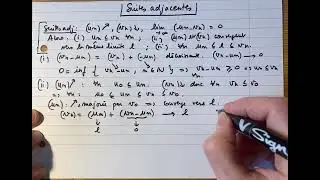 Suites adjacentes
Suites adj: (un)↗, (vn)↘, lim (vn - un) = 0
Alors: (i) un ≤ vn ∀n (ii) (un) et (vn) convergent
vers la même limite l (iii) ∀n un ≤ l ≤ vn
(i) (vn - un) = (vn) + (-un) décroissante. (vn - un) → 0
0 = inf { vn - un, n ∈ N } ⇒ vn - un ≥ 0 ⇒ un ≤ vn
(ii) (un)↗ ∀n u0 ≤ un (vn)↘ donc ∀n vn ≤ v0
⇒ ∀n: u0 ≤ un ≤ vn ≤ v0
(un): ↗, majorée par v0 ⇒ converge vers l.
(vn) = (un) + (vn - un) → l
l 0